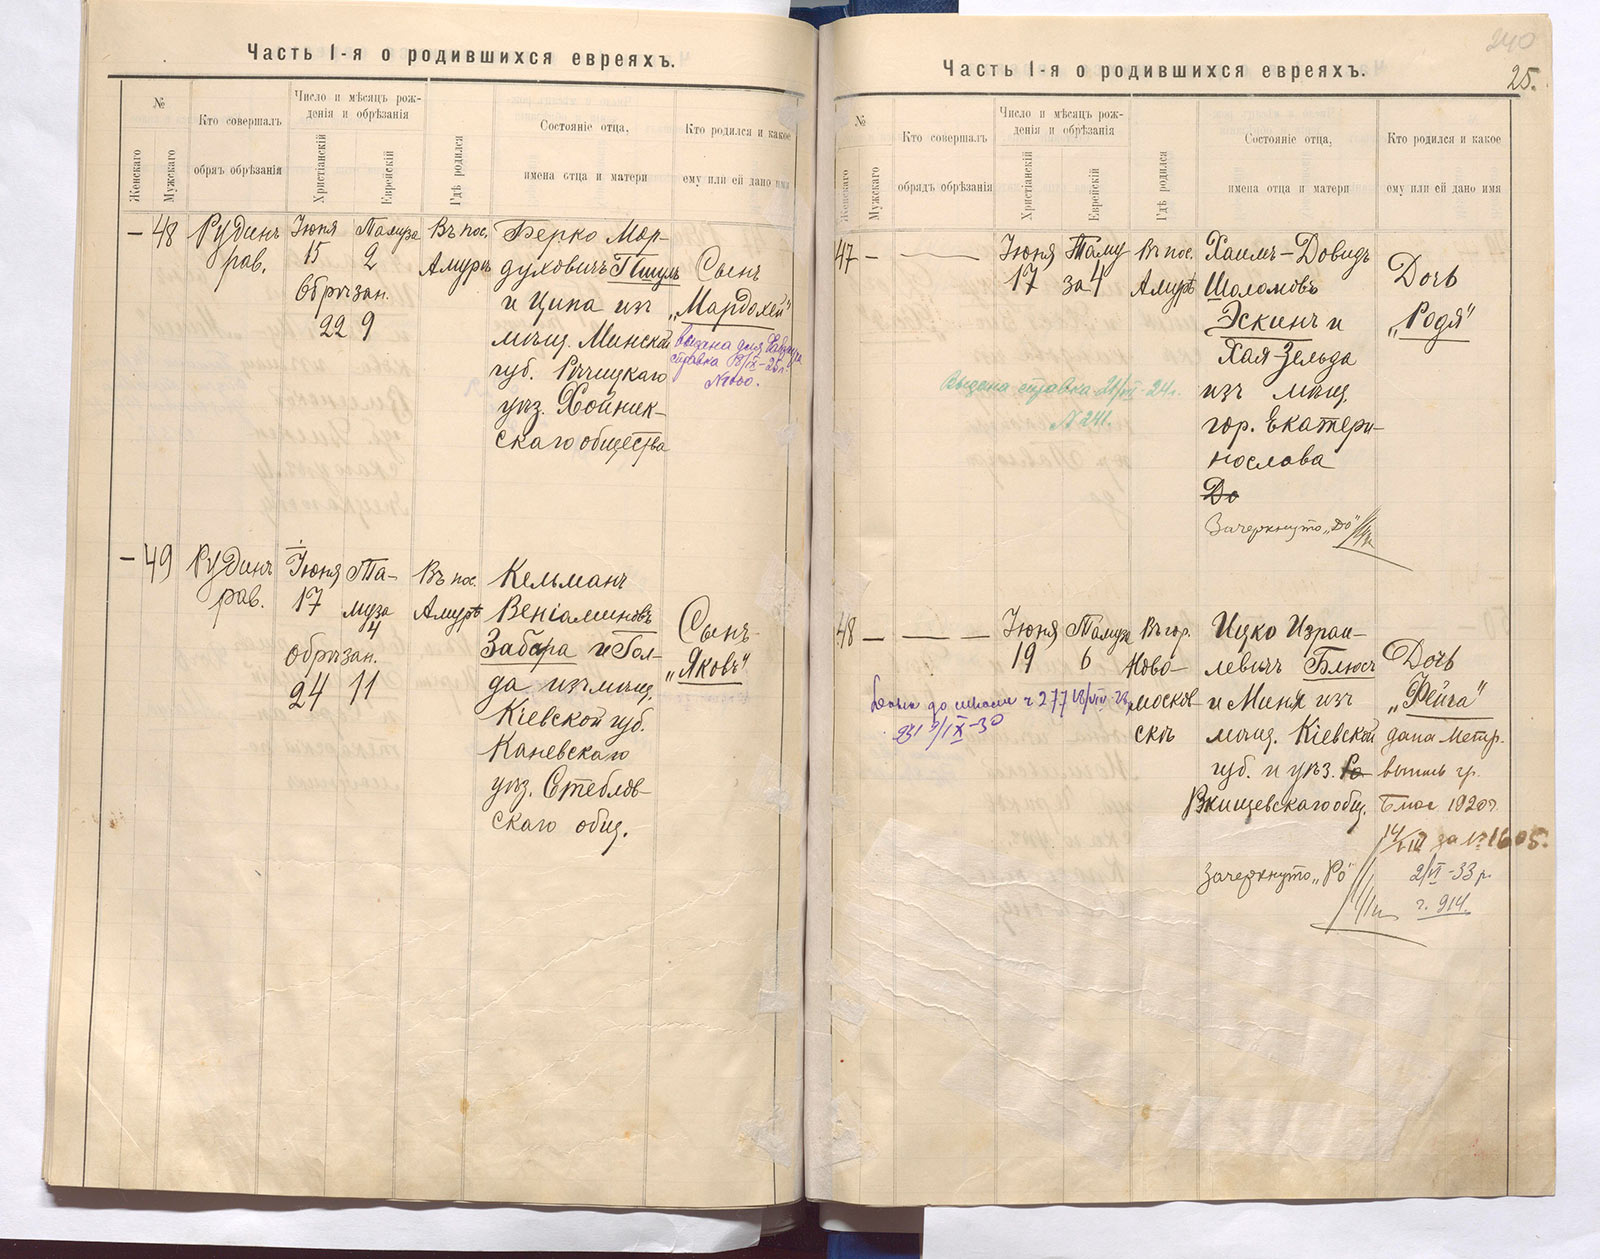 Часть I-я о родившихся евреяхъ.
№
Женскаго
Мужскаго
Кто совершалъ
обрядъ обрѣзанія
Число и мѣсяцъ рож-
денія и обрѣзанія
Христіанскій
Еврейскій
Гдѣ родился
Состояніе отца,
имена отца и матери
Кто родился и какое
ему или ей дано имя
— 48
Рудинъ
рав.
Іюня
15
Обрѣзан.
22 9
Тамуза
2
Въ пос.
Амурѣ
Берко Мор-
духовичъ
и Ципа изъ
мѣщ. Минской
губ. Рѣчицкаго
уѣз. Хойник-
скаго общества
Сынъ
„Мардохей“
выдана для
справка
— 49
Рудинъ
рав.
Іюня
17
Обрѣзан.
24 11
Та-
муза
4
Въ пос.
Амурѣ
Кельманъ
Веніаминовъ
Забара и Гол-
да изъ мѣщ.
Кіевской губ.
Каневскаго
уѣз. Стеблов-
скаго общ.
Сынъ
„Яковъ“
Часть I-я о родившихся евреяхъ.
240
25.
№
Женскаго
Мужскаго
Кто совершалъ
обрядъ обрѣзанія
Число и мѣсяцъ рож-
денія и обрѣзанія
Христіанскій
Еврейскій
Гдѣ родился
Состояніе отца,
имена отца и матери
Кто родился и какое
ему или ей дано имя
47 —
Іюня
17
Таму
за 4
Въ пос.
Амурѣ
Хаимъ-Довидъ
Шоломовъ
Эскинъ и
Хая-Зельда
изъ мѣщ.
гор. Екатери-
нослава
До
Зачеркнуто „До“
Дочь
„Родя“
Выдана справка 21/VII-24г.
N 241.
48 —
Іюня
19
Тамуза
6
Въ гор.
Ново-
москов
скѣ
Ицко Израи-
левичъ Блюсъ
и Миня изъ
мѣщ. Кіевской
губ. и уѣз. Ро
Ржищевскаго общ.
Зачеркнуто „Ро“
Дочь
„Фейга“
дана метр.
выпись гр.
1920 г.
за № 1605.
2/VI-33 р.
г. 914.